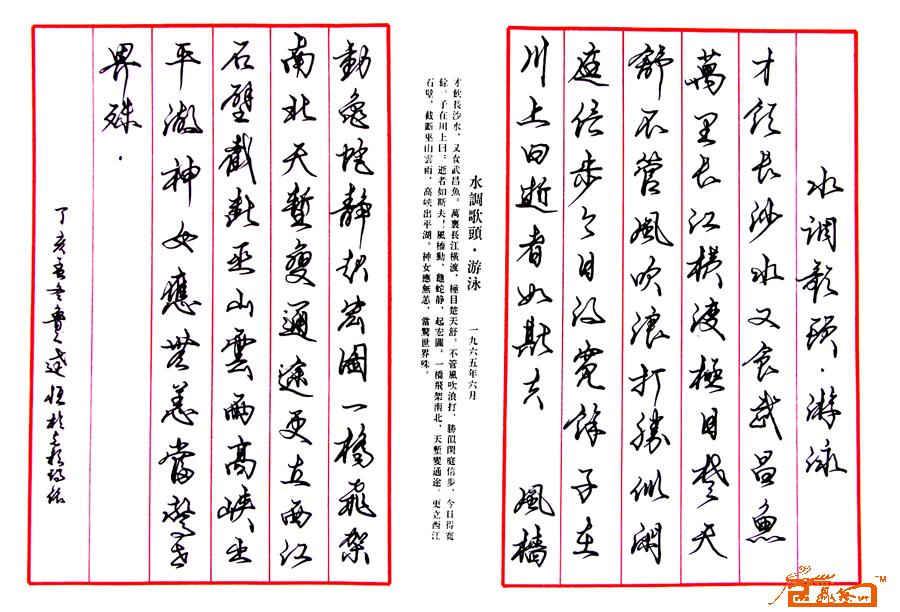 水調歌頭·游泳
才飲長沙水又食武昌魚
萬里長江橫渡極目楚天
舒不管風吹浪打勝似閑
庭信步今日得寬餘子在
川上曰逝者如斯夫 風檣
水調歌頭·游泳 一九六五年六月
才飲長沙水,又食武昌魚。萬裏長江橫渡,極目楚天舒。不管風吹浪打,勝似閑庭信步,今日得寬
餘。子在川上曰:逝者如斯夫!風檣動,龜蛇静,起宏圖。一橋飛架南北,天塹變通途。更立西江
石壁,截斷巫山雲雨,高峽出平湖。神女應無恙,當驚世界殊。
動龜蛇静起宏圖一橋飛架
南北天塹變通途更立西江
石壁截斷巫山雲雨高峽出
平湖神女應無恙當驚世
界殊.
丁亥孟冬